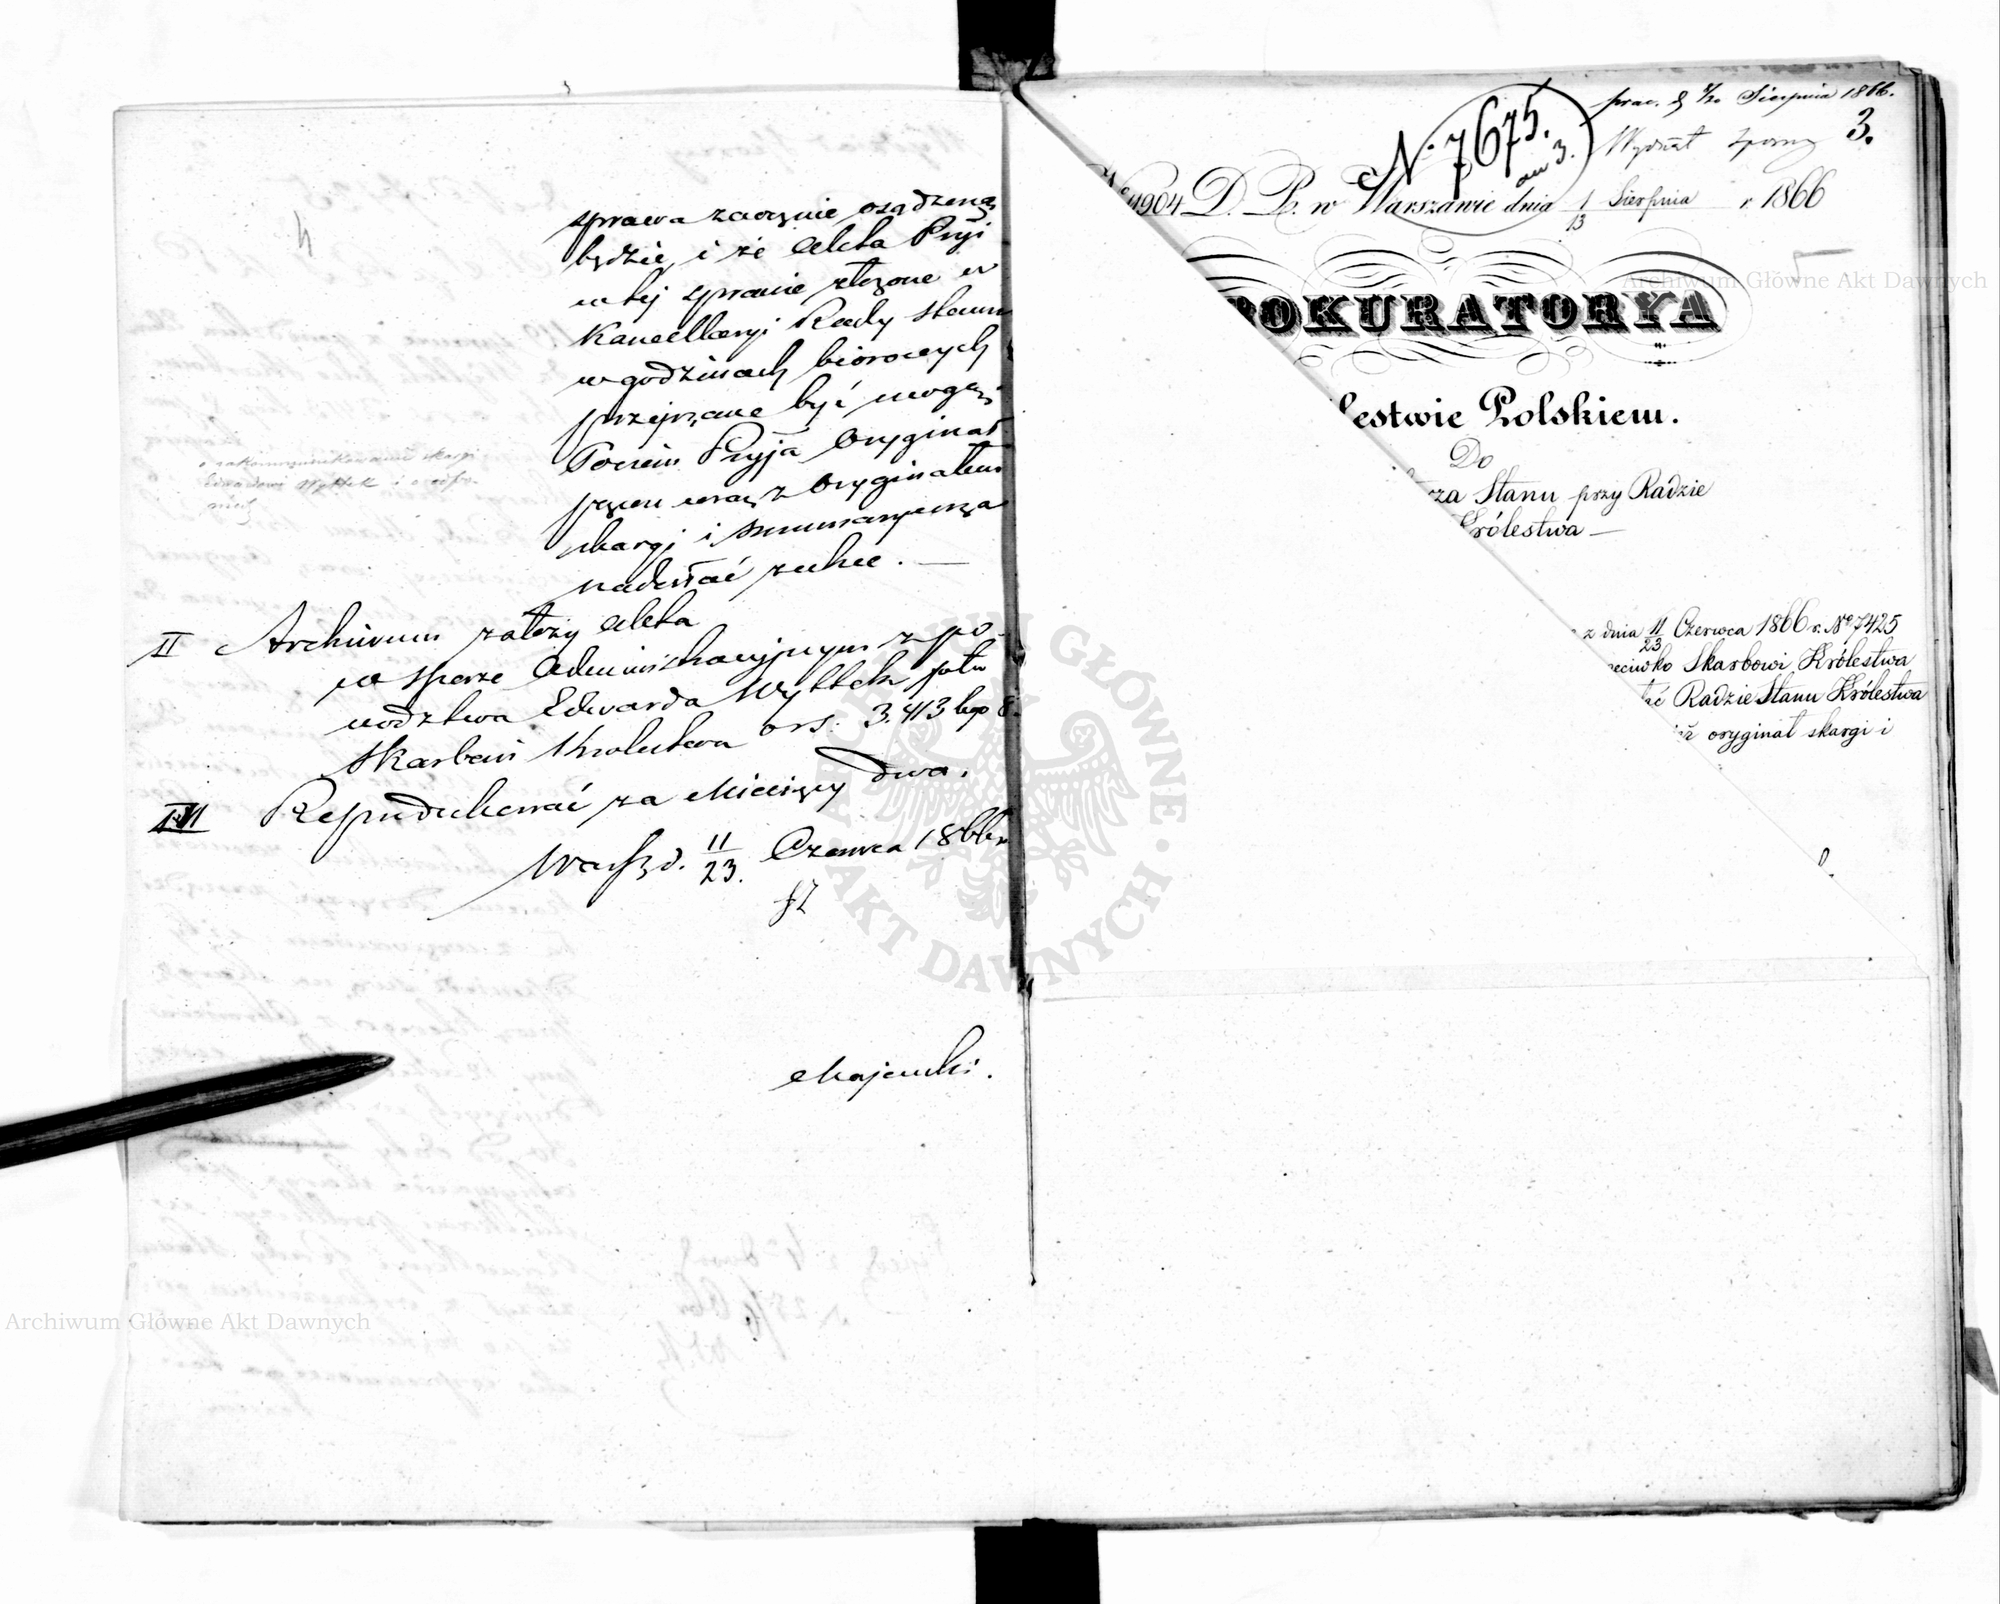 sprawa zaocznie osądzoną
będzie, i że Akta Pryj
w tej sprawie złożone w
Kancellaryi Rady Stanu
w godzinach biórowych
przejrzane być mogą;
Poczem Pryja Oryginał
wraz z Oryginałem
skargi i summaryusza
nadesłać zechce. —
o zakommunikowanie skargi
Edwardowi Wyttek i
II Archiwum założy Akta
w sporze Administracyjnym z po-
wodztwa Edwarda Wyttek ptko
Skarbowi Królestwa o rs. 3.413 kop 8
III Reprodukować za Miesięcy dwa.
Warsz. d. 11/23. Czerwca 1866 r.
Majewski.
N. 7675.
3.
prae. d. 8/20 Sierpnia 1866.
Wydział Sporny 3.
No 4904 D. P. w Warszawie dnia 1/13 Sierpnia r. 1866
OKURATORYA
lestwie Polskiem.
Do
rza Stanu przy Radzie
Królestwa —
z dnia 11/23 Czerwca 1866 r. No 7425
eciwko Skarbowi Królestwa
ać Radzie Stanu Królestwa
oryginał skargi i
Archiwum Główne Akt Dawnych
ARCHIWUM GŁÓWNE AKT DAWNYCH
Archiwum Główne Akt Dawnych